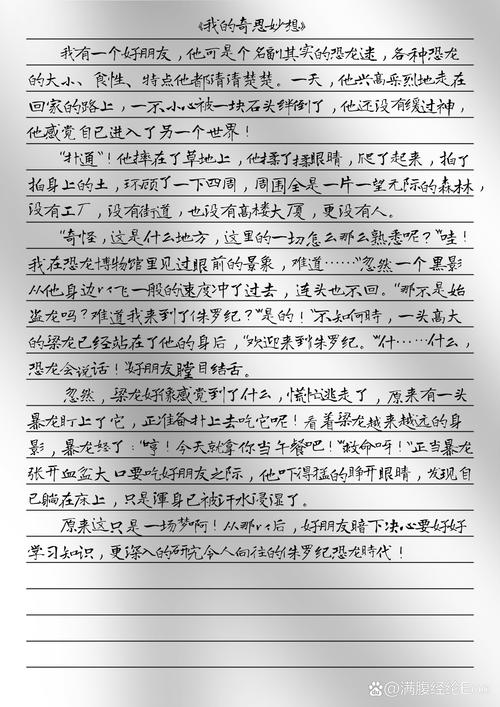 《我的奇思妙想》
我有一个好朋友，他可是个名副其实的恐龙迷，各种恐龙
的大小、食性、特点他都清清楚楚。一天，他兴高采烈地走在
回家的路上，一不小心被一块石头绊倒了，他还没有缓过神，
他感觉自己进入了另一个世界！
“扑通”！他摔在了草地上，他揉了揉眼睛，爬了起来，拍了
拍身上的土，环顾了一下四周，周围全是一片一望无际的森林，
没有工厂，没有街道，也没有高楼大厦，更没有人。
“奇怪，这是什么地方，这里的一切怎么那么熟悉呢？”哇！
我在恐龙博物馆里见过眼前的景象，难道……“忽然一个黑影
从他身边以飞一般的速度冲了过去，连头也不回。“那不是始
盗龙吗？难道我来到了侏罗纪？”是的！”不知何時，一头高大
的梁龙已经站在了他的身后，“欢迎来到侏罗纪。”什……什么，
恐龙会说话！”好朋友瞠目结舌。
忽然，梁龙好像感觉到了什么，慌忙逃走了，原来有一头
暴龙盯上了它，正准备扑上去吃它呢！看着梁龙越来越远的身
影，暴龙怒了：“哼！今天就拿你当午餐吧！”“救命呀！”正当暴龙
张开血盆大口要吃好朋友之际，他吓得猛的睁开眼睛，发现自
己躺在床上，只是渾身已被汗水浸湿了。
原来这只是一场梦啊！从那以后，好朋友暗下决心要好好
学习知识，更深入的研究令人向往的侏罗纪恐龙時代！
@满腹经纶E